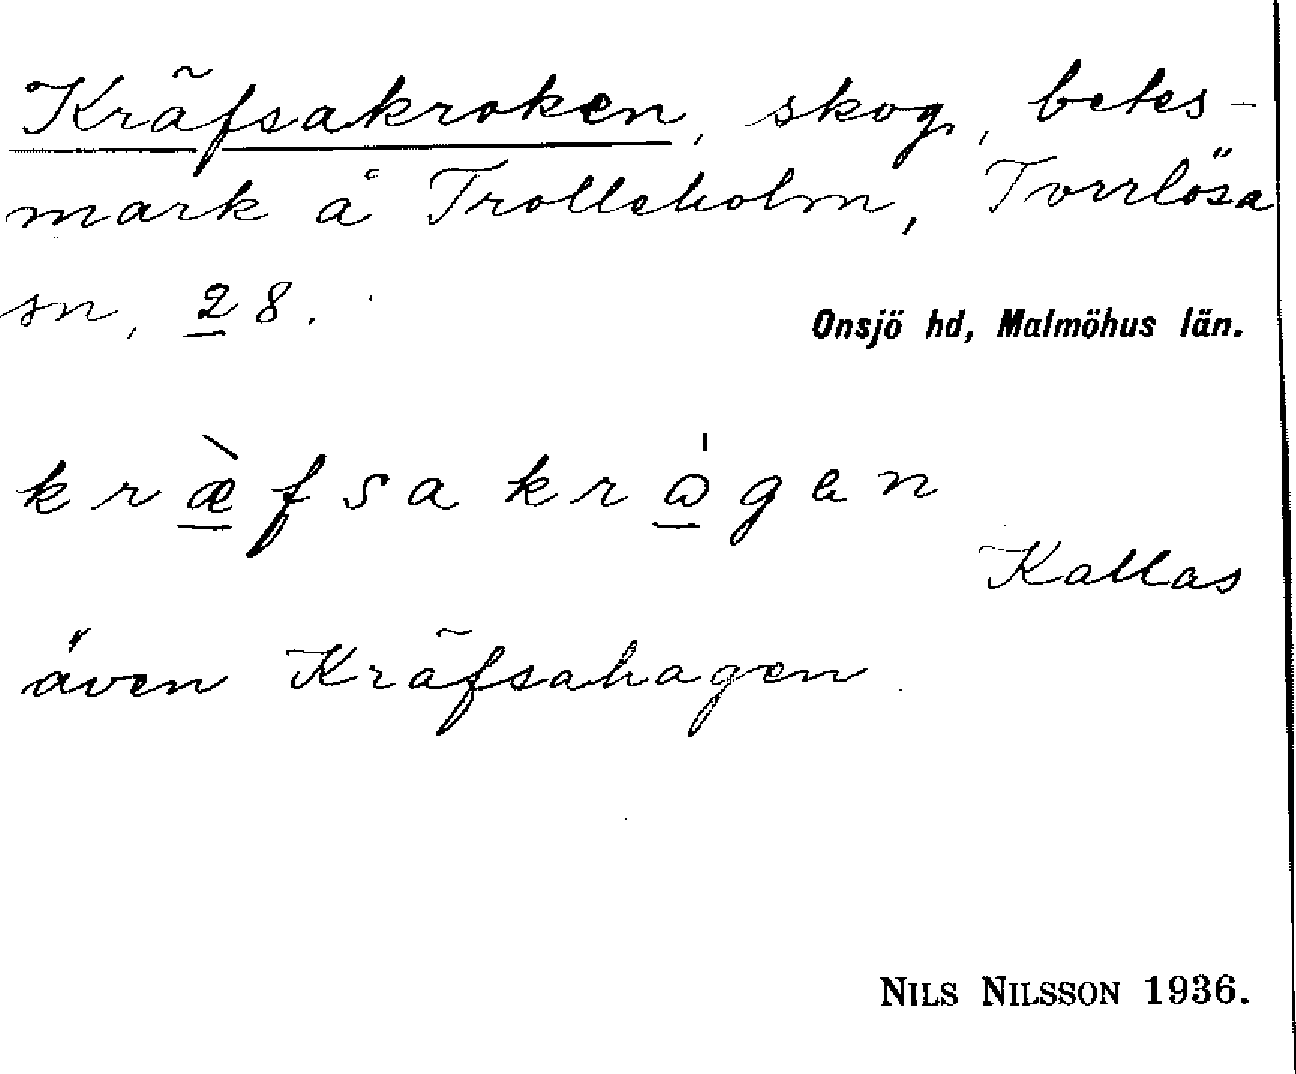 Kräfsakroken, skog, betes-
mark å Trolleholm, Torrlösa
sn, 28.
Onsjö hd, Malmöhus län.
kræ̀fsakrógen
Kallas
även Kräfsahagen.
NILS NILSSON 1936.